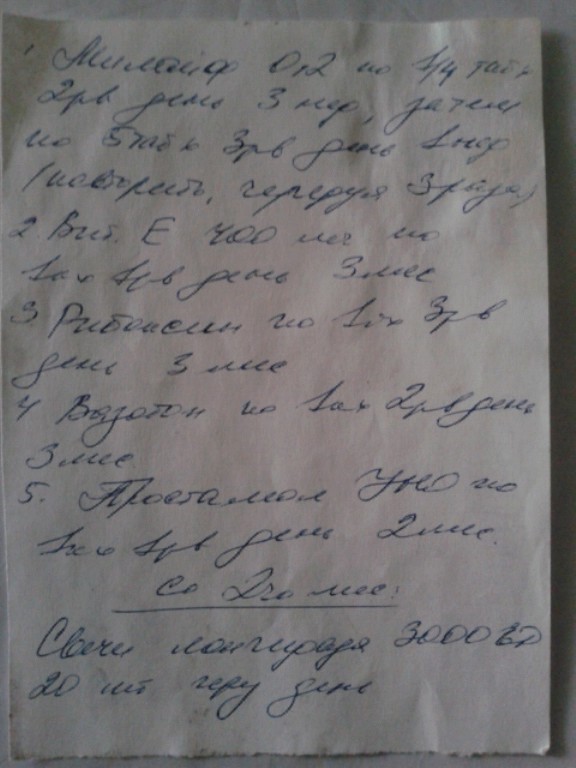 1 Милайф 0,2 по 1/4 таб
2рв день 3 нед, затем
по 5таб 3рв день 1нед
(повторить, чередуя 3 раза)
2. Вит. Е 400 мг по
1к 1рв день 3 мес
3. Рибоксин по 1т 3рв
день 3 мес
4 Вазотон по 1к 2рвдень
3 мес
5. Простамол УНО по
1к 1рв день 2 мес.
со 2го мес:
Свечи лонгидаза 3000 ЕД
20 шт через день